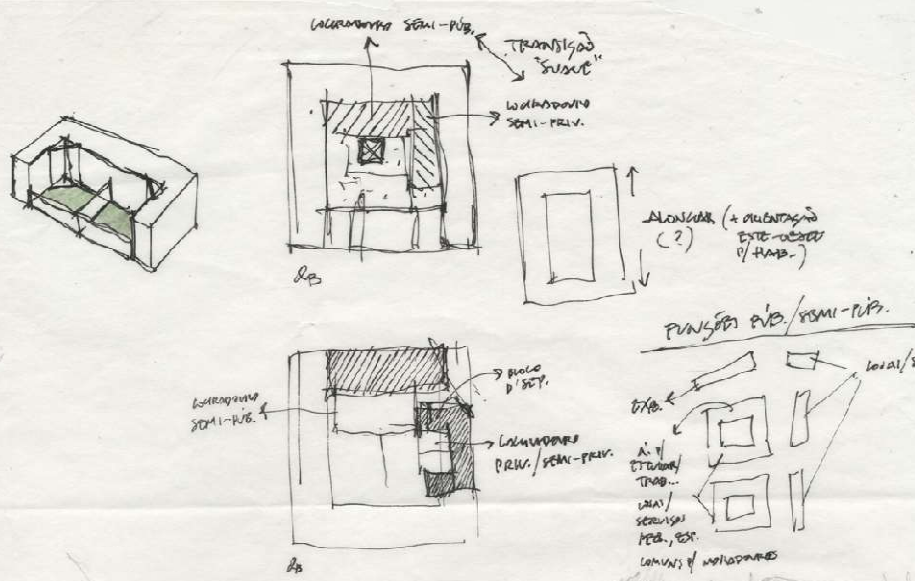 LOGRADOURO SEMI-PÚB.
TRANSIÇÃO
"SUAVE"
LOGRADOURO
SEMI-PRIV.
ALONGAR (+ ORIENTAÇÃO
(?) ESTE-OESTE
P/ HAB.)
2B
FUNÇÕES PÚB./SEMI-PÚB.
BLOCO
D'SEP.
LOGRADOURO
SEMI-PÚB.
LOGRADOURO
PRIV./SEMI-PRIV.
LOJAS/
EXP.
A. P/
ESTUDAR/
TRAB...
LOJAS/
SERVIÇOS
COMUNS P/ MORADORES
2B